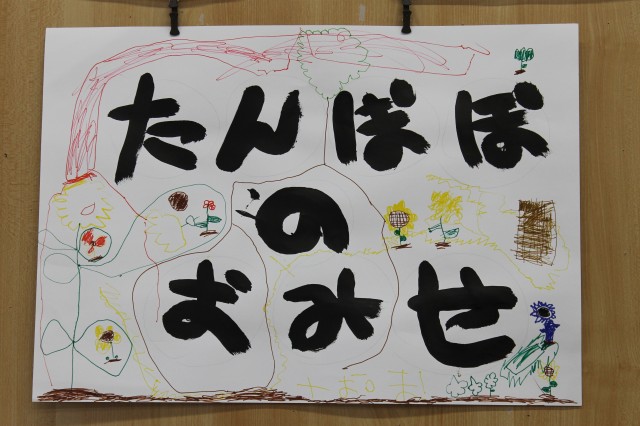 たんぽぽ
の
おみせ